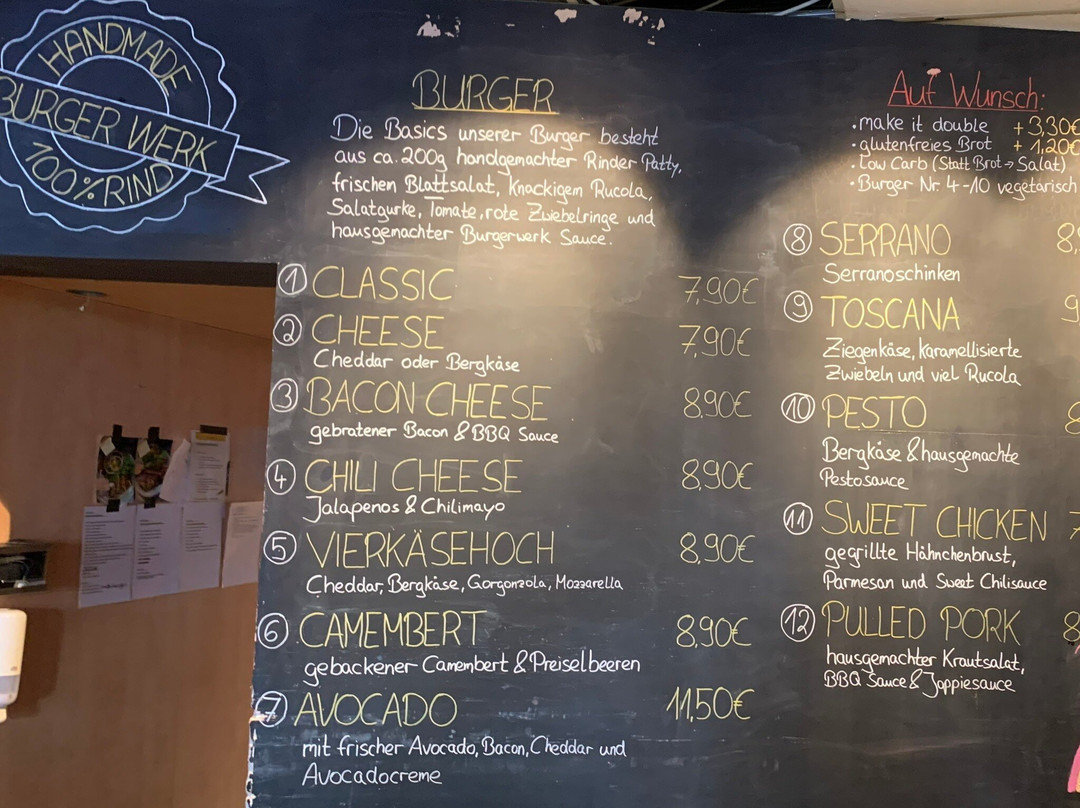 HANDMADE
BURGER WERK
100% RIND
BURGER
Die Basics unserer Burger besteht
aus ca. 200g handgemachter Rinder Patty,
frischen Blattsalat, knackigem Rucola,
Salatgurke, Tomate, rote Zwiebelringe und
hausgemachter Burgerwerk Sauce.
1 CLASSIC 7,90€
2 CHEESE 7,90€
Cheddar oder Bergkäse
3 BACON CHEESE 8,90€
gebratener Bacon & BBQ Sauce
4 CHILI CHEESE 8,90€
Jalapenos & Chilimayo
5 VIERKÄSEHOCH 8,90€
Cheddar, Bergkäse, Gorgonzola, Mozzarella
6 CAMEMBERT 8,90€
gebackener Camembert & Preiselbeeren
7 AVOCADO 11,50€
mit frischer Avocado, Bacon, Cheddar und
Avocadocreme
Auf Wunsch:
• make it double + 3,30€
• glutenfreies Brot + 1,20€
• Low Carb (Statt Brot → Salat)
• Burger Nr 4-10 vegetarisch
8 SERRANO 8,
Serranoschinken
9 TOSCANA 9
Ziegenkäse, karamellisierte
Zwiebeln und viel Rucola
10 PESTO
Bergkäse & hausgemachte
Pestosauce
11 SWEET CHICKEN 7
gegrillte Hähnchenbrust,
Parmesan und Sweet Chilisauce
12 PULLED PORK 8
hausgemachter Krautsalat,
BBQ Sauce & Joppiesauce